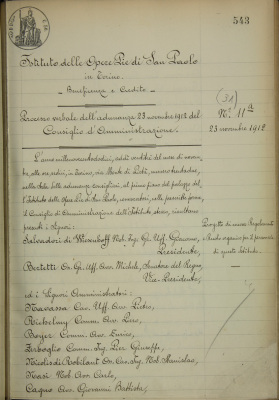 543
Istituto delle Opere Pie di San Paolo
in Torino
Beneficenza e Credito
Processo verbale dell'adunanza 23 novembre 1912 del
Consiglio d'Amministrazione.
(31)
N.° 11
23 novembre 1912
L'anno millenovecentododici, addì ventitré del mese di novem-
bre, alle ore , in Torino, via Monte di Pietà, numero trentadue,
nella sala delle adunanze consigliari, al primo piano del palazzo del-
l'Istituto delle Opere Pie di San Paolo, convocatosi, nelle prescritte forme,
il Consiglio di Amministrazione dell'Istituto stesso, risultano
presenti i Signori:
Salvadori di Wiesenhoff Nob. Ing. Gr. Uff. Giacomo,
Presidente,
Bertetti Cr. Gr. Uff. Avv. Michele, Senatore del Regno,
Vice-Presidente,
ed i Signori Amministratori:
Ravassa Cav. Uff. Avv. Pietro,
Rickelmy Comm. Avv.
Boyer Comm. Avv. Enrico,
Zerboglio Comm. Ing. Pier Giuseppe,
Nicolis di Robilant Ing. Nob. Stanislao,
Nasi Nob. Avv. Carlo,
Cagno Avv. Giovanni Battista,
Progetto di nuovo Regolamento
e Ruolo organico per il personale
di questo Istituto.